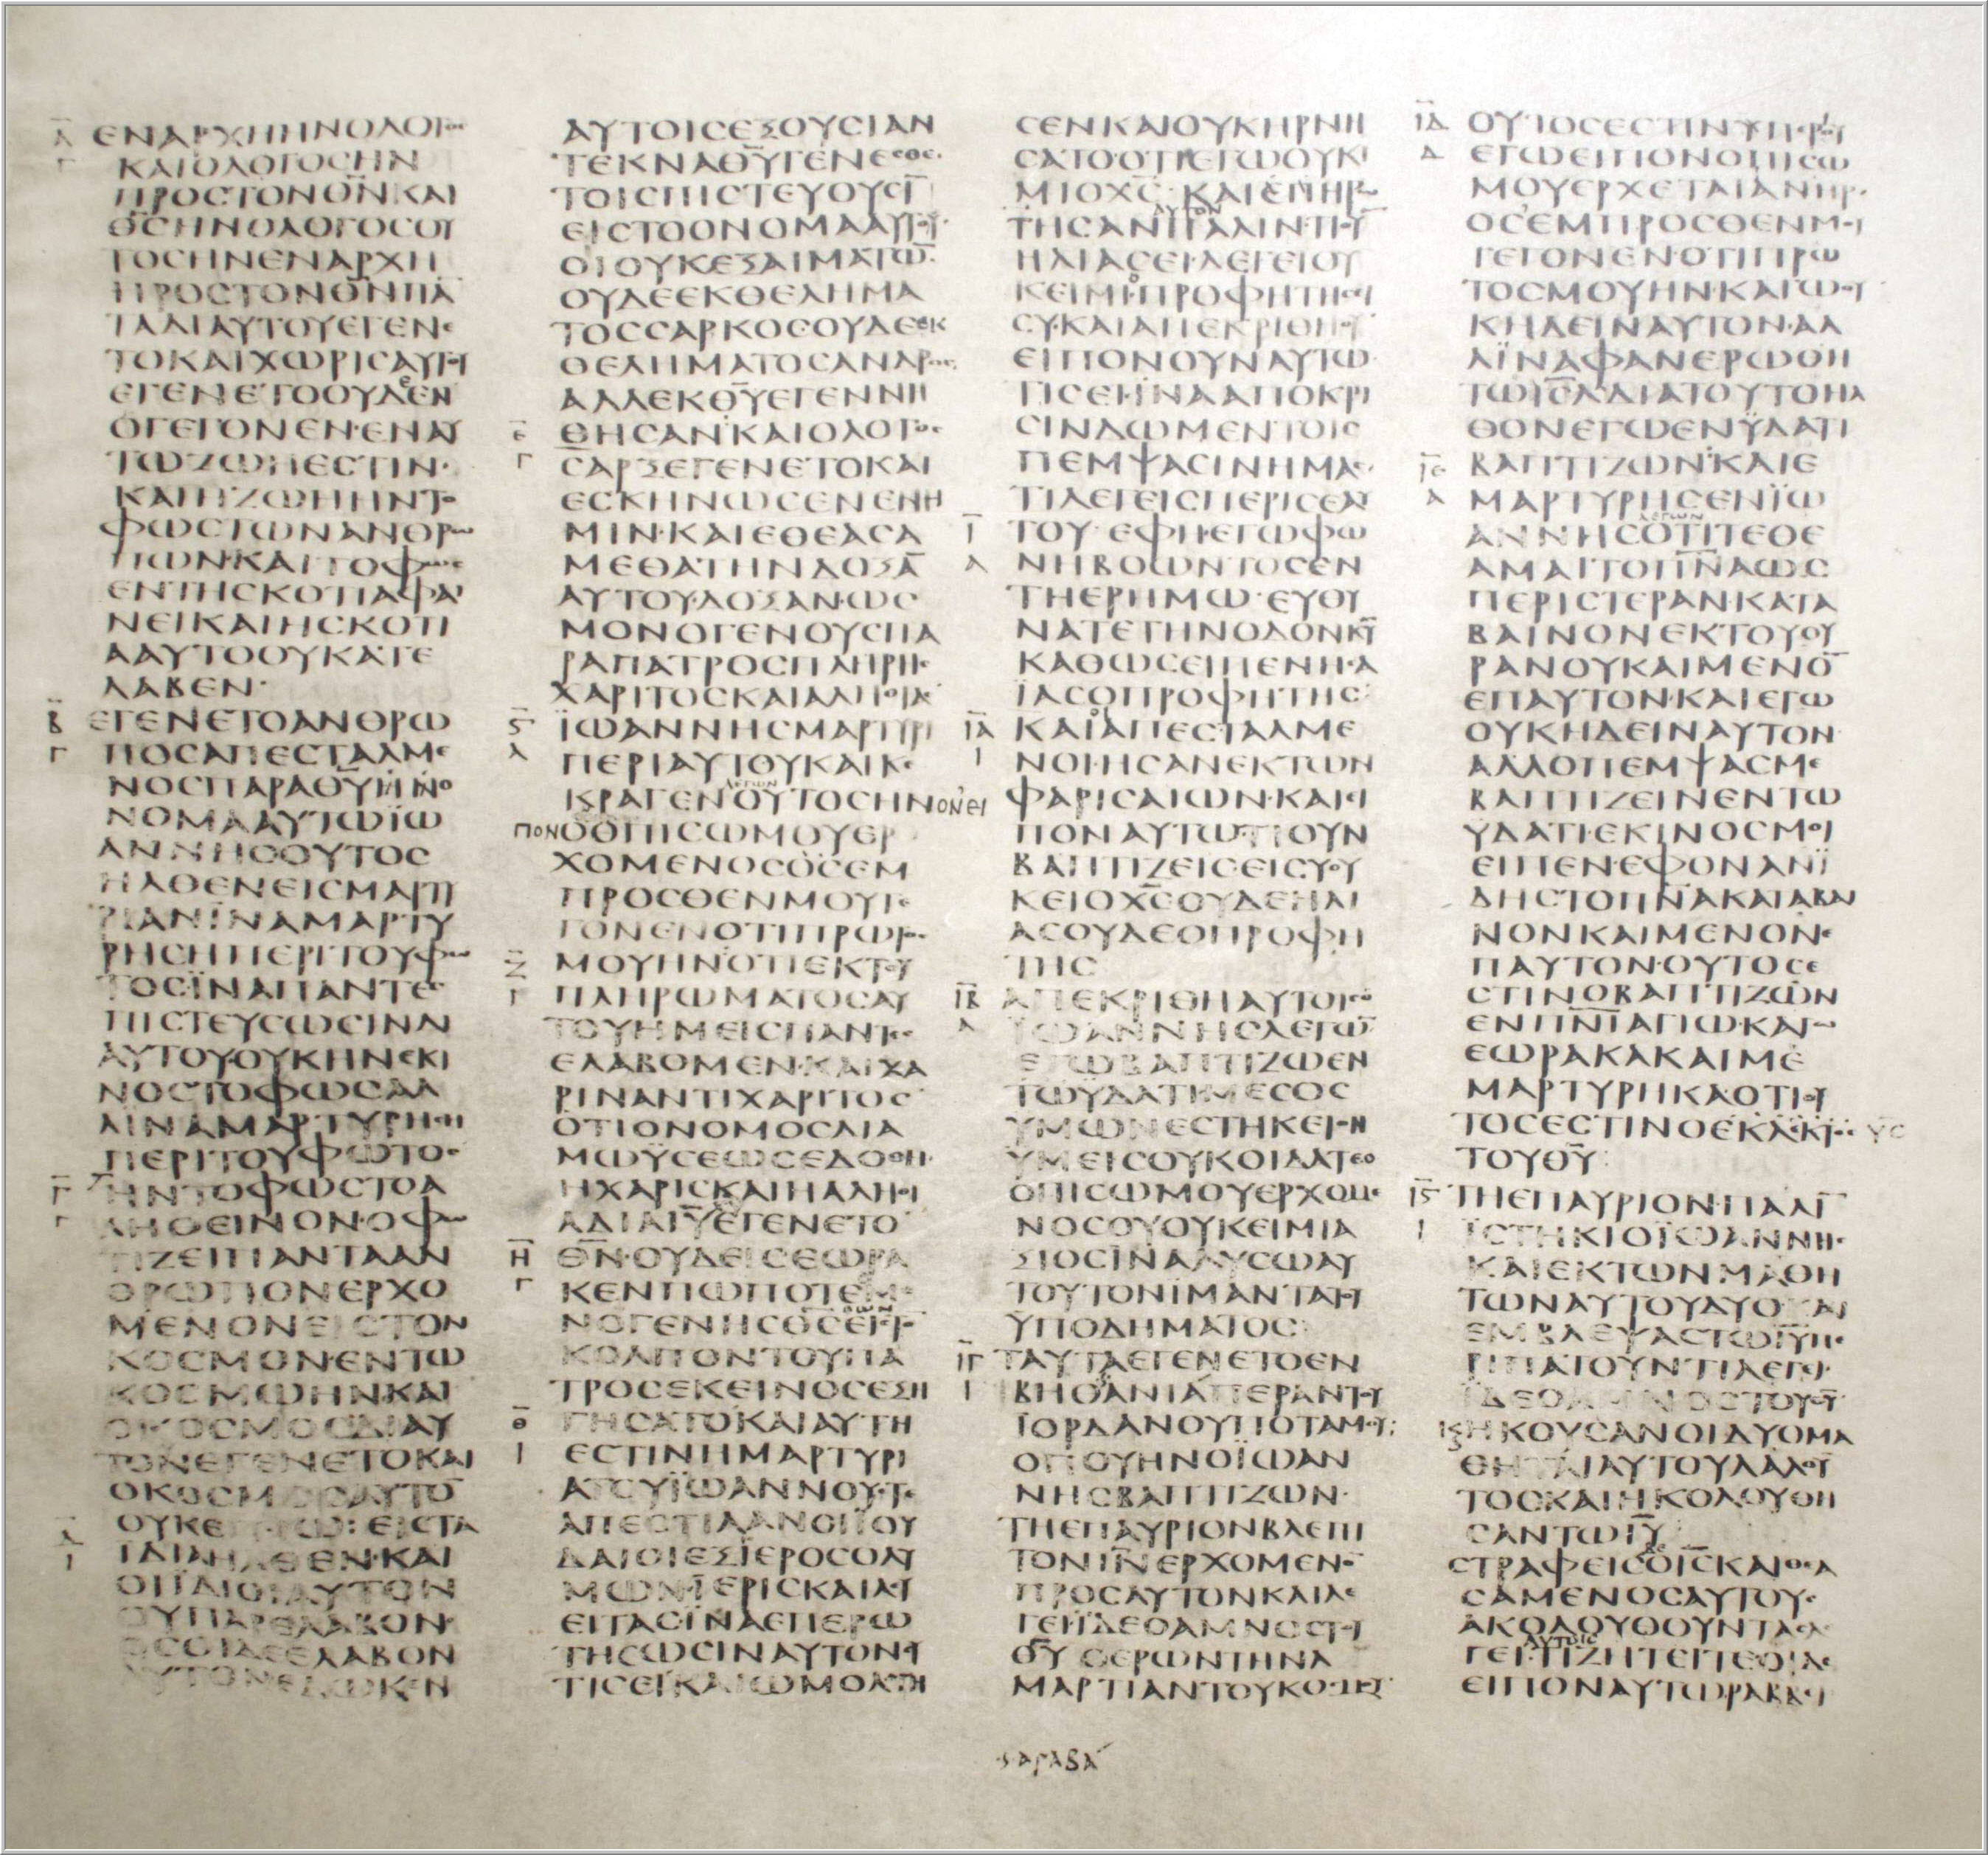 Α ΕΝΑΡΧΗΗΝΟΛΟΓΟϹ
Γ ΚΑΙΟΛΟΓΟϹΗΝ
ΠΡΟϹΤΟΝΘ̅Ν̅ΚΑΙ
Θ̅Ϲ̅ΗΝΟΛΟΓΟϹΟΥ
ΤΟϹΗΝΕΝΑΡΧΗ
ΠΡΟϹΤΟΝΘ̅Ν̅ΠΑ
ΤΑΔΙΑΥΤΟΥΕΓΕΝΕ
ΤΟΚΑΙΧΩΡΙϹΑΥΤΟΥ
ΕΓΕΝΕΤΟΟΥΔΕΝ
ΟΓΕΓΟΝΕΝ·ΕΝΑΥ
ΤΩΖΩΗΕϹΤΙΝ·
ΚΑΙΗΖΩΗΗΝΤΟ
ΦΩϹΤΩΝΑΝΘΡΩ
ΠΩΝ·ΚΑΙΤΟΦΩϹ
ΕΝΤΗϹΚΟΤΙΑΦΑΙ
ΝΕΙΚΑΙΗϹΚΟΤΙ
ΑΑΥΤΟΟΥΚΑΤΕ
ΛΑΒΕΝ·
Β ΕΓΕΝΕΤΟΑΝΘΡΩ
Γ ΠΟϹΑΠΕϹΤΑΛΜΕ
ΝΟϹΠΑΡΑΘ̅Υ̅ΗΝΟ
ΝΟΜΑΑΥΤΩΪΩ
ΑΝΝΗϹΟΥΤΟϹ
ΗΛΘΕΝΕΙϹΜΑΡΤΥ
ΡΙΑΝΪΝΑΜΑΡΤΥ
ΡΗϹΗΠΕΡΙΤΟΥΦΩ
ΤΟϹΪΝΑΠΑΝΤΕϹ
ΠΙϹΤΕΥϹΩϹΙΝΔΙ
ΑΥΤΟΥ·ΟΥΚΗΝΕΚΙ
ΝΟϹΤΟΦΩϹΑΛ
ΛΙΝΑΜΑΡΤΥΡΗϹΗ
ΠΕΡΙΤΟΥΦΩΤΟϹ·
Γ ΗΝΤΟΦΩϹΤΟΑ
Γ ΛΗΘΕΙΝΟΝ·ΟΦΩ
ΤΙΖΕΙΠΑΝΤΑΑΝ
ΘΡΩΠΟΝΕΡΧΟ
ΜΕΝΟΝΕΙϹΤΟΝ
ΚΟϹΜΟΝ·ΕΝΤΩ
ΚΟϹΜΩΗΝΚΑΙ
ΟΚΟϹΜΟϹΔΙΑΥ
ΤΟΝΕΓΕΝΕΤΟΚΑΙ
ΟΚΟϹΜΟϹΑΥΤΟ̅
ΟΥΚΕΓΝΩ·ΕΙϹΤΑ
Δ ΙΔΙΑΗΛΘΕΝ·ΚΑΙ
Ι ΟΙΪΔΙΟΙΑΥΤΟΝ
ΟΥΠΑΡΕΛΑΒΟΝ·
ΟϹΟΙΔΕΕΛΑΒΟΝ
ΑΥΤΟΝΕΔΩΚΕΝ
ΑΥΤΟΙϹΕΞΟΥϹΙΑΝ
ΤΕΚΝΑΘ̅Υ̅ΓΕΝΕϹΘΕ·
ΤΟΙϹΠΙϹΤΕΥΟΥϹΙ̅
ΕΙϹΤΟΟΝΟΜΑΑΥΤΟΥ·
ΟΙΟΥΚΕΞΑΙΜΑΤΩ̅
ΟΥΔΕΕΚΘΕΛΗΜΑ
ΤΟϹϹΑΡΚΟϹΟΥΔΕΕΚ
ΘΕΛΗΜΑΤΟϹΑΝΔΡΟϹ
ΑΛΛΕΚΘ̅Υ̅ΕΓΕΝΝΗ
Ε ΘΗϹΑΝ·ΚΑΙΟΛΟΓΟϹ
Γ ϹΑΡΞΕΓΕΝΕΤΟΚΑΙ
ΕϹΚΗΝΩϹΕΝΕΝΗ
ΜΙΝ·ΚΑΙΕΘΕΑϹΑ
ΜΕΘΑΤΗΝΔΟΞΑ̅
ΑΥΤΟΥ·ΔΟΞΑΝ·ΩϹ
ΜΟΝΟΓΕΝΟΥϹΠΑ
ΡΑΠΑΤΡΟϹΠΛΗΡΗϹ
ΧΑΡΙΤΟϹΚΑΙΑΛΗΘΙΑϹ
Ϛ ΪΩΑΝΝΗϹΜΑΡΤΥΡΙ
Α ΠΕΡΙΑΥΤΟΥΚΑΙΚΕ
ΛΕΓΩΝ
ΚΡΑΓΕΝΟΥΤΟϹΗΝ ΟΝΕΙ
ΠΟΝ ΟΟΠΙϹΩΜΟΥΕΡ
ΧΟΜΕΝΟϹΟϹΕΜ
ΠΡΟϹΘΕΝΜΟΥΓΕ
ΓΟΝΕΝΟΤΙΠΡΩΤΟϹ
Ζ ΜΟΥΗΝ·ΟΤΙΕΚΤΟΥ
Γ ΠΛΗΡΩΜΑΤΟϹΑΥ
ΤΟΥΗΜΕΙϹΠΑΝΤΕϹ
ΕΛΑΒΟΜΕΝ·ΚΑΙΧΑ
ΡΙΝΑΝΤΙΧΑΡΙΤΟϹ
ΟΤΙΟΝΟΜΟϹΔΙΑ
ΜΩΫϹΕΩϹΕΔΟΘΗ·
ΗΧΑΡΙϹΚΑΙΗΑΛΗΘΙ
ΑΔΙΑΙ̅Υ̅ΕΓΕΝΕΤΟ
Η Θ̅Ν̅·ΟΥΔΕΙϹΕΩΡΑ
Γ ΚΕΝΠΩΠΟΤΕΜΟ
ΝΟΓΕΝΗϹΘ̅Ϲ̅ΕΙϹΤΟΝ
ΚΟΛΠΟΝΤΟΥΠΑ
ΤΡΟϹΕΚΕΙΝΟϹΕΞΗ
Θ ΓΗϹΑΤΟ·ΚΑΙΑΥΤΗ
Ι ΕϹΤΙΝΗΜΑΡΤΥΡΙ
ΑΤΟΥΪΩΑΝΝΟΥ·ΟΤΕ
ΑΠΕϹΤΙΛΑΝΟΙΪΟΥ
ΔΑΙΟΙΕΞΪΕΡΟϹΟΛΥ
ΜΩΝ·ΪΕΡΙϹΚΑΙΛΕΥ
ΕΙΤΑϹΪΝΑΕΠΕΡΩ
ΤΗϹΩϹΙΝΑΥΤΟΝϹΥ
ΤΙϹΕΙ·ΚΑΙΩΜΟΛΟΓΗ
ϹΕΝΚΑΙΟΥΚΗΡΝΗ
ϹΑΤΟ·ΟΤΙΕΓΩΟΥΚΙ
ΜΙΟΧ̅Ϲ̅·ΚΑΙΕΠΗΡΩ
ΑΥΤΟΝ
ΤΗϹΑΝΠΑΛΙΝ·ΤΙΟΥ̅
ΗΛΙΑϹΕΙ·ΛΕΓΕΙΟΥ
ΚΕΙΜΙ·ΠΡΟΦΗΤΗϹΕΙ
ϹΥ·ΚΑΙΑΠΕΚΡΙΘΗ·ΟΥ
ΕΙΠΟΝΟΥΝΑΥΤΩ·
ΤΙϹΕΙ·ΪΝΑΑΠΟΚΡΙ
ϹΙΝΔΩΜΕΝΤΟΙϹ
ΠΕΜΨΑϹΙΝΗΜΑϹ·
ΤΙΛΕΓΕΙϹΠΕΡΙϹΕΑΥ
Ι ΤΟΥ·ΕΦΗ·ΕΓΩΦΩ
Α ΝΗΒΟΩΝΤΟϹΕΝ
ΤΗΕΡΗΜΩ·ΕΥΘΥ
ΝΑΤΕΤΗΝΟΔΟΝΚ̅Υ̅
ΚΑΘΩϹΕΙΠΕΝΗϹΑ
ΪΑϹΟΠΡΟΦΗΤΗϹ·
ΙΑ ΚΑΙΑΠΕϹΤΑΛΜΕ
Ι ΝΟΙ·ΗϹΑΝΕΚΤΩΝ
ΦΑΡΙϹΑΙΩΝ·ΚΑΙΕΙ
ΠΟΝΑΥΤΩΤΙΟΥΝ
ΒΑΠΤΙΖΕΙϹΕΙϹΥΟΥ
ΚΕΙΟΧ̅Ϲ̅ΟΥΔΕΗΛΙ
ΑϹΟΥΔΕΟΠΡΟΦΗ
ΤΗϹ
ΙΒ ΑΠΕΚΡΙΘΗΑΥΤΟΙϹΟ
Α ΪΩΑΝΝΗϹΛΕΓΩ̅
ΕΓΩΒΑΠΤΙΖΩΕΝ
ΤΩΫΔΑΤΙ·ΜΕϹΟϹ
ΥΜΩΝΕϹΤΗΚΕΙΟΝ
ΥΜΕΙϹΟΥΚΟΙΔΑΤΕΟ
ΟΠΙϹΩΜΟΥΕΡΧΟΜΕ
ΝΟϹΟΥΟΥΚΕΙΜΙΑ
ΞΙΟϹΪΝΑΛΥϹΩΑΥ
ΤΟΥΤΟΝΙΜΑΝΤΑΤΟΥ
ΫΠΟΔΗΜΑΤΟϹ·
ΙΓ ΤΑΥΤΑΕΓΕΝΕΤΟΕΝ
Ι ΒΗΘΑΝΙΑΠΕΡΑΝΤΟΥ
ΪΟΡΔΑΝΟΥΠΟΤΑΜΟΥ·
ΟΠΟΥΗΝΟΪΩΑΝ
ΝΗϹΒΑΠΤΙΖΩΝ·
ΤΗΕΠΑΥΡΙΟΝΒΛΕΠΙ
ΤΟΝΙ̅Ν̅ΕΡΧΟΜΕΝΟ̅
ΠΡΟϹΑΥΤΟΝΚΑΙΛΕ
ΓΕΙΪΔΕΟΑΜΝΟϹΤΟΥ
Θ̅Υ̅ΟΕΡΩΝΤΗΝΑ
ΜΑΡΤΙΑΝΤΟΥΚΟϹΜΟΥ
ΙΔ ΟΥΤΟϹΕϹΤΙΝΥΠΕΡΟΥ
Δ ΕΓΩΕΙΠΟΝΟΠΙϹΩ
ΜΟΥΕΡΧΕΤΑΙΑΝΗΡ·
ΟϹΕΜΠΡΟϹΘΕΝΜΟΥ
ΓΕΓΟΝΕΝ·ΟΤΙΠΡΩ
ΤΟϹΜΟΥΗΝ·ΚΑΓΩΟΥ
ΚΗΔΕΙΝΑΥΤΟΝ·ΑΛ
ΛΪΝΑΦΑΝΕΡΩΘΗ
ΤΩΙ̅Ϲ̅Λ̅ΔΙΑΤΟΥΤΟΗΛ
ΘΟΝΕΓΩΕΝΫΔΑΤΙ
ΙΕ ΒΑΠΤΙΖΩΝ·ΚΑΙΕ
Α ΜΑΡΤΥΡΗϹΕΝΪΩ
ΛΕΓΩΝ
ΑΝΝΗϹΟΤΙΤΕΘΕ
ΑΜΑΙΤΟΠ̅Ν̅Α̅ΩϹ
ΠΕΡΙϹΤΕΡΑΝ·ΚΑΤΑ
ΒΑΙΝΟΝΕΚΤΟΥΟΥ
ΡΑΝΟΥΚΑΙΜΕΝΟ̅
ΕΠΑΥΤΟΝ·ΚΑΙΕΓΩ
ΟΥΚΗΔΕΙΝΑΥΤΟΝ
ΑΛΛΟΠΕΜΨΑϹΜΕ
ΒΑΠΤΙΖΕΙΝΕΝΤΩ
ΥΔΑΤΙ·ΕΚΙΝΟϹΜΟΙ
ΕΙΠΕΝ·ΕΦΟΝΑΝΪ
ΔΗϹΤΟΠ̅Ν̅Α̅ΚΑΤΑΒΑΙ
ΝΟΝΚΑΙΜΕΝΟΝΕ
ΠΑΥΤΟΝ·ΟΥΤΟϹΕ
ϹΤΙΝΟΒΑΠΤΙΖΩΝ
ΕΝΠ̅Ν̅Ι̅ΑΓΙΩ·ΚΑΓΩ
ΕΩΡΑΚΑΚΑΙΜΕ
ΜΑΡΤΥΡΗΚΑΟΤΙΟΥ
ΤΟϹΕϹΤΙΝΟΕΚΛΕΚΤΟϹ ΥϹ
ΤΟΥΘ̅Υ̅·
ΙϚ ΤΗΕΠΑΥΡΙΟΝ·ΠΑΛΙ̅
Ι ΪϹΤΗΚΙΟΪΩΑΝΝΗϹ·
ΚΑΙΕΚΤΩΝΜΑΘΗ
ΤΩΝΑΥΤΟΥΔΥΟΚΑΙ
ΕΜΒΛΕΨΑϹΤΩΙ̅Υ̅ΠΕ
ΡΙΠΑΤΟΥΝΤΙΛΕΓΕΙ·
ΪΔΕΟΑΜΝΟϹΤΟΥΘ̅Υ̅
ΚΗΚΟΥϹΑΝΟΙΔΥΟΜΑ
ΘΗΤΑΙΑΥΤΟΥΛΑΛΟΥ̅
ΤΟϹΚΑΙΗΚΟΛΟΥΘΗ
ϹΑΝΤΩΙ̅Υ̅
ΔΕ
ϹΤΡΑΦΕΙϹΟΙ̅Ϲ̅ΚΑΙΘΕΑ
ϹΑΜΕΝΟϹΑΥΤΟΥϹ
ΑΚΟΛΟΥΘΟΥΝΤΑϹΛΕ
ΑΥΤΟΙϹ
ΓΕΙ·ΤΙΖΗΤΕΙΤΕΟΙΔΕ
ΕΙΠΟΝΑΥΤΩΡΑΒΒΕΙ